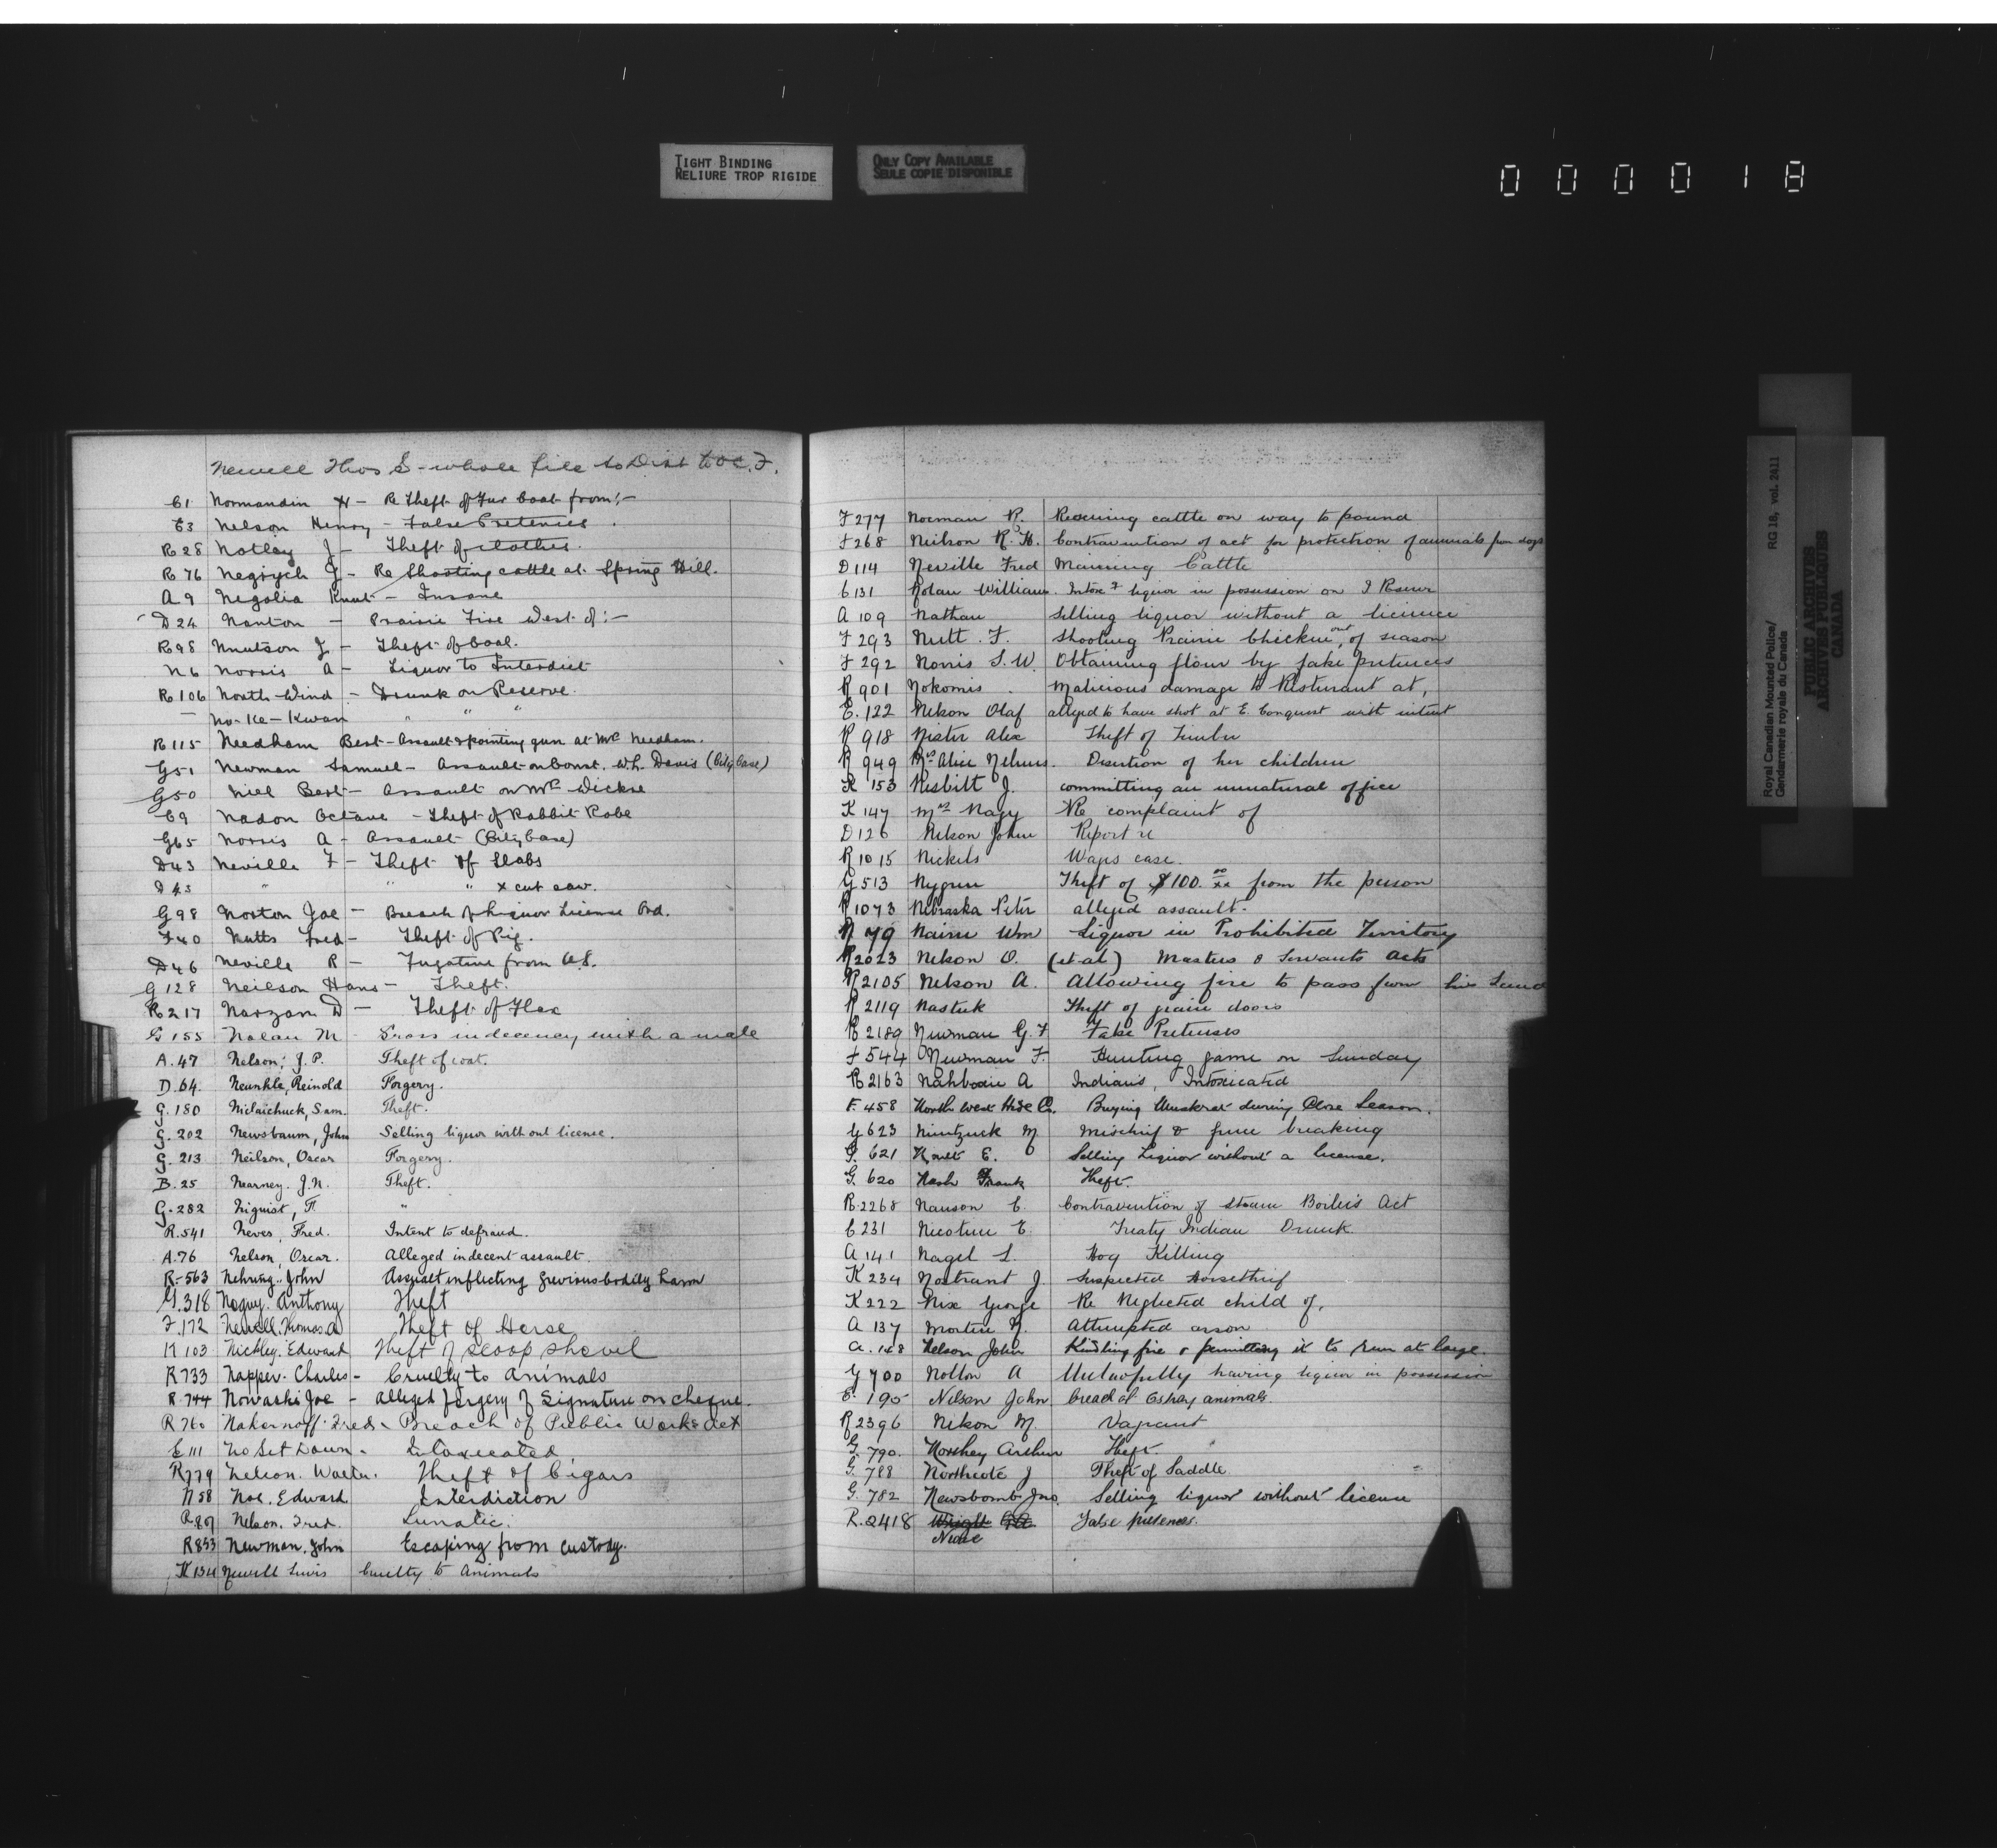 TIGHT BINDING
RELIURE TROP RIGIDE
ONLY COPY AVAILABLE
SEULE COPIE DISPONIBLE
000018
Royal Canadian Mounted Police/ RG 18, vol. 2411
Gendarmerie royale du Canada
PUBLIC ARCHIVES
ARCHIVES PUBLIQUES
CANADA
Newell Thos S - whole file to Dist to O.C. F.
C1 Normandin - Re Theft of Fur Coat from:-
C3 Nelson Henry - False Pretences.
R28 Notley J - Theft of clothes.
R76 J - Re Shooting cattle at Spring Hill.
A9 Negolia Knut - Insane
D24 Nanton - Prairie Fire West of:-
R98 Knutson J - Theft of Coal.
N6 Norris A - Liquor to Interdict
R106 North Wind - Drunk on Reserve.
No-Ke-Kwan " " "
R115 Needham Bert - Assault & pointing gun at Mrs Needham.
G51 Newman Samuel - Assault on Const. W.H. Davis (City Case)
G50 Neil Bert - Assault on Mrs Dickie
C9 Nadon Octave - Theft of Rabbit Robe
G65 Norris A - Assault (City Case)
D43 Neville F - Theft of Slabs
D43 " " " x cut saw.
G98 Norton Joe - Breach of Liquor License Ord.
F40 Nutts Fred - Theft of Pig.
D46 Neville R - Fugative from U.S.
G128 Neilson Hans - Theft.
R217 Narzan D - Theft of Flax
G155 Nolan M - Gross indecency with a male
A.47 Nelson, J.P. Theft of coat.
D.64. Neunkle, Reinold Forgery.
G.180 Nilaichuck, Sam. Theft.
G.202 Newsbaum, John Selling liquor without license.
G.213 Neilson, Oscar Forgery.
B.25 Nearney. J.N. Theft.
G.282 Niquist, F. "
R.541 Neves, Fred. Intent to defraud.
A.76 Nelson, Oscar. Alleged indecent assault.
R-563 Nehring, John Assualt inflicting grevious bodily harm
G.318 Noguy. Anthony Theft
F.172 Newell. Thomas. A Theft of Horse
K103 Nickley. Edward Theft of scoop shovel
R733 Napper. Charles - Cruelty to Animals
R.744 Nowaski Joe - Alleged forgery of signature on cheque.
R760 Nakernoff. Fred. Breach of Public Works Act
E111 No Set Down. Intoxicated
R779 Nelson. Walter. Theft of Cigars
N58 Noe. Edward Interdiction
R.807 Nelson, Fred. Lunatic.
R853 Newman. John Escaping from custody.
K134 Newell Lewis Cruelty to Animals
F277 Norman R. Rescuing cattle on way to pound
F268 Neilson R.H. Contravention of act for protection of animals from dogs
D114 Neville Fred Maiming Cattle
C131 Nolan William. Intox & liquor in possession on I Reserve
A109 Nathan Selling liquor without a licence
F293 Nutt. F. Shooting Prairie Chicken out of season
F292 Norris S.W. Obtaining flour by false pretences
R901 Nokomis. Malicious damage to Resturant at,
E.122 Nelson Olaf alleged to have shot at E. Conquest with intent
R918 Nister Alex Theft of Timber
R949 Mrs Alice Nelmes. Desertion of her children
K153 Nesbitt J. committing an unnatural office
K147 Mrs Nagy Re complaint of
D126 Nelson John Report re
R1015 Nickels Wages case.
G513 Nygren Theft of $100. 00/xx from the person
R1073 Nebraska Peter alleged assault.
N79 Nairn Wm Liquor in Prohibited Territory
R2023 Nelson O. (et al) Masters & Servants Acts
R2105 Nelson A. Allowing fire to pass from his land
R2119 Nastuk Theft of grain doors
R2189 Newman G.F False Pretenses
F544 Newman F. Hunting game on Sunday
R2163 Nahbexie A Indians, Intoxicated
F.458 North West Hide Co. Buying Muskrat during Close Season.
G623 M. Mischief & fence breaking
G.621 E. Selling Liquor without a license.
G.620 Nash Frank Theft.
R.2268 Nanson C. Contravention of Steam Boilers Act
C231 Nicotine E. Treaty Indian Drunk
A141 Nagel L. Hog Killing
K234 Nostrant J. Suspected Horsethief
K222 Nix George Re Neglected child of,
A137 Morten N. Attempted arson
A.168 Nelson John Kindling fire & permitting it to run at large.
G700 Nolton A Unlawfully having liquor in possession
E.195 Nelson John breach of Estray animals.
R2396 Nelson M. Vagrant
G.790. Northey Arthur Theft.
G.788 Northcote J Theft of Saddle
G.782 Newsbomb Jno. Selling liquor without licence
R.2418 Wright False pretences.